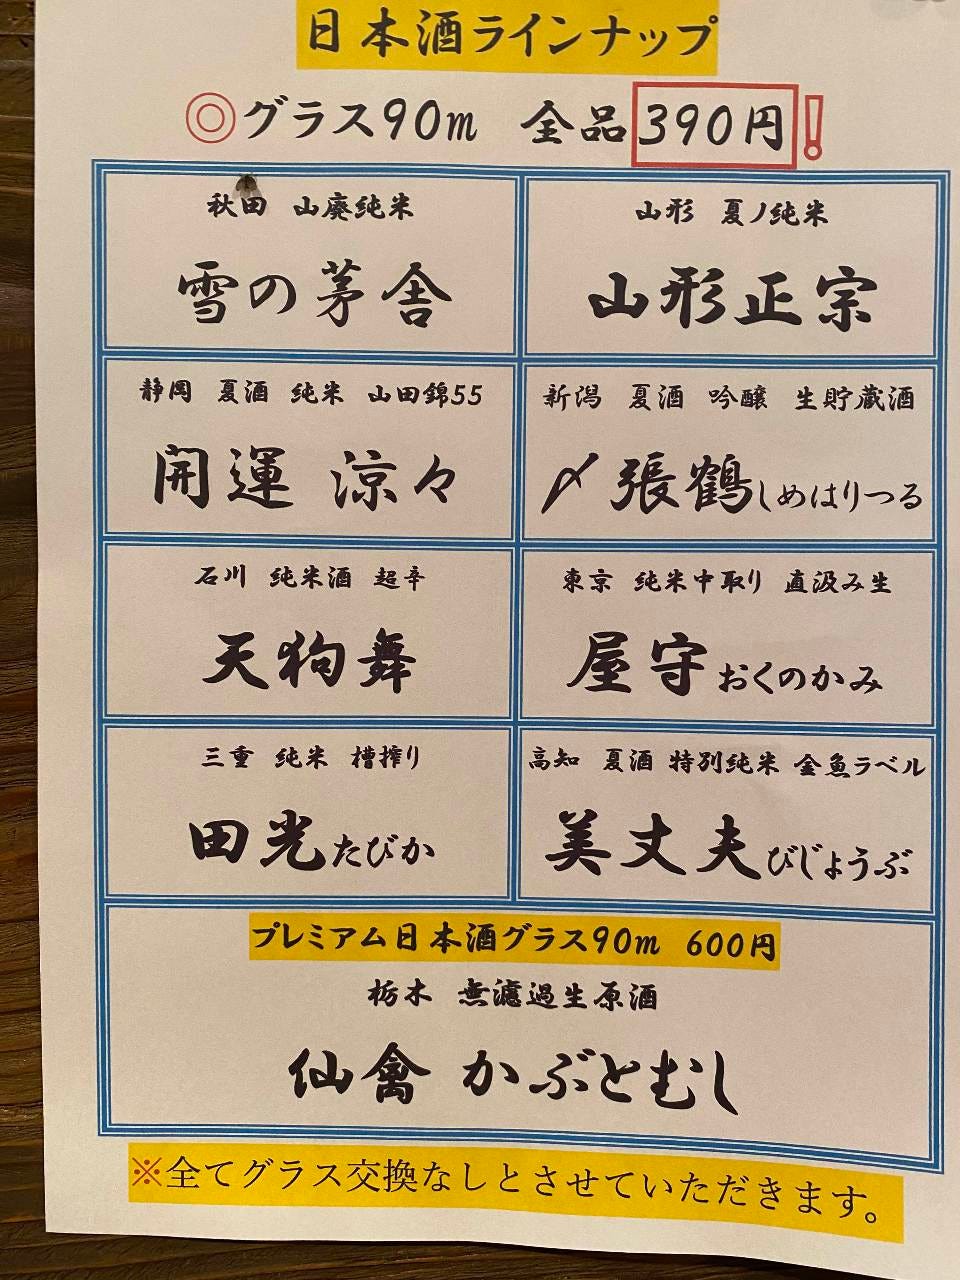 日本酒ラインナップ
◎グラス90m 全品390円!
秋田 山廃純米
雪の茅舎
山形 夏ノ純米
山形正宗
静岡 夏酒 純米 山田錦55
開運 涼々
新潟 夏酒 吟醸 生貯蔵酒
〆張鶴しめはりつる
石川 純米酒 超辛
天狗舞
東京 純米中取り 直汲み生
屋守おくのかみ
三重 純米 槽搾り
田光たびか
高知 夏酒 特別純米 金魚ラベル
美丈夫びじょうぶ
プレミアム日本酒グラス90m 600円
栃木 無濾過生原酒
仙禽 かぶとむし
※全てグラス交換なしとさせていただきます。